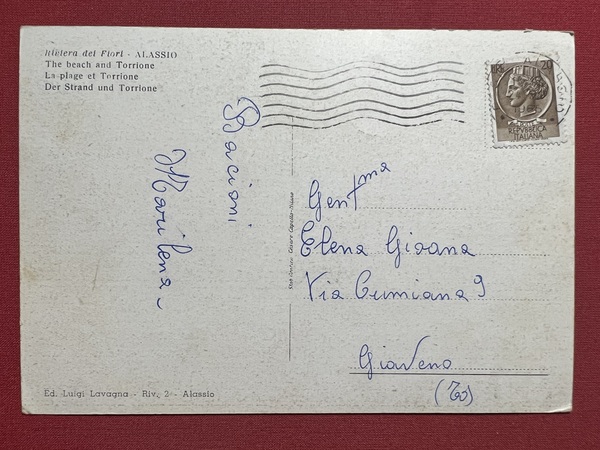 Riviera dei Fiori - ALASSIO
The beach and Torrione
La plage et Torrione
Der Strand und Torrione
Bacioni
Marilena
Gent.ma
Elena Gioana
Via Cumiana 9
Giaveno
(TO)
LIRE 20
REPVBBLICA
ITALIANA
Ed. Luigi Lavagna - Riv. 2 - Alassio